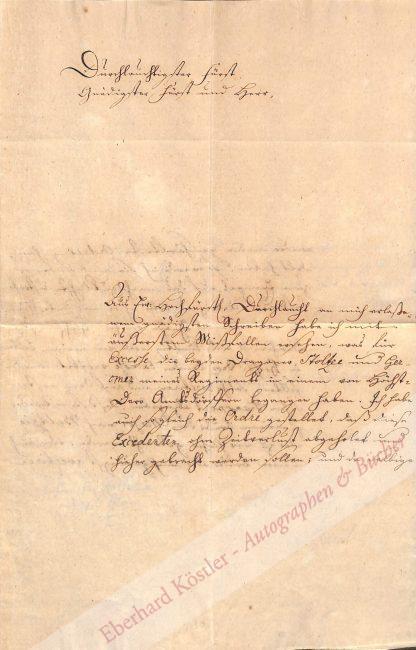 Durchlauchtigster Fürst
Gnädigster Fürst und Herr,
Aus Ew. Hochfürstl. Durchlaucht an mich erlaße-
nem gnädigsten Schreiben habe ich mit
äußersten Mißfallen ersehen, was für
Excesse die beyden Dragoner Stoltze und
meines Regiments in einem von Höchst
Dero Amtsdörffern begangen haben. Ich habe
auch sogleich die Ordre gestellet, daß diese
Excedenten ohne Zeitverlust abgeholet und
hieher gebracht werden sollen; und
Eberhard Köstler - Autographen & Bücher